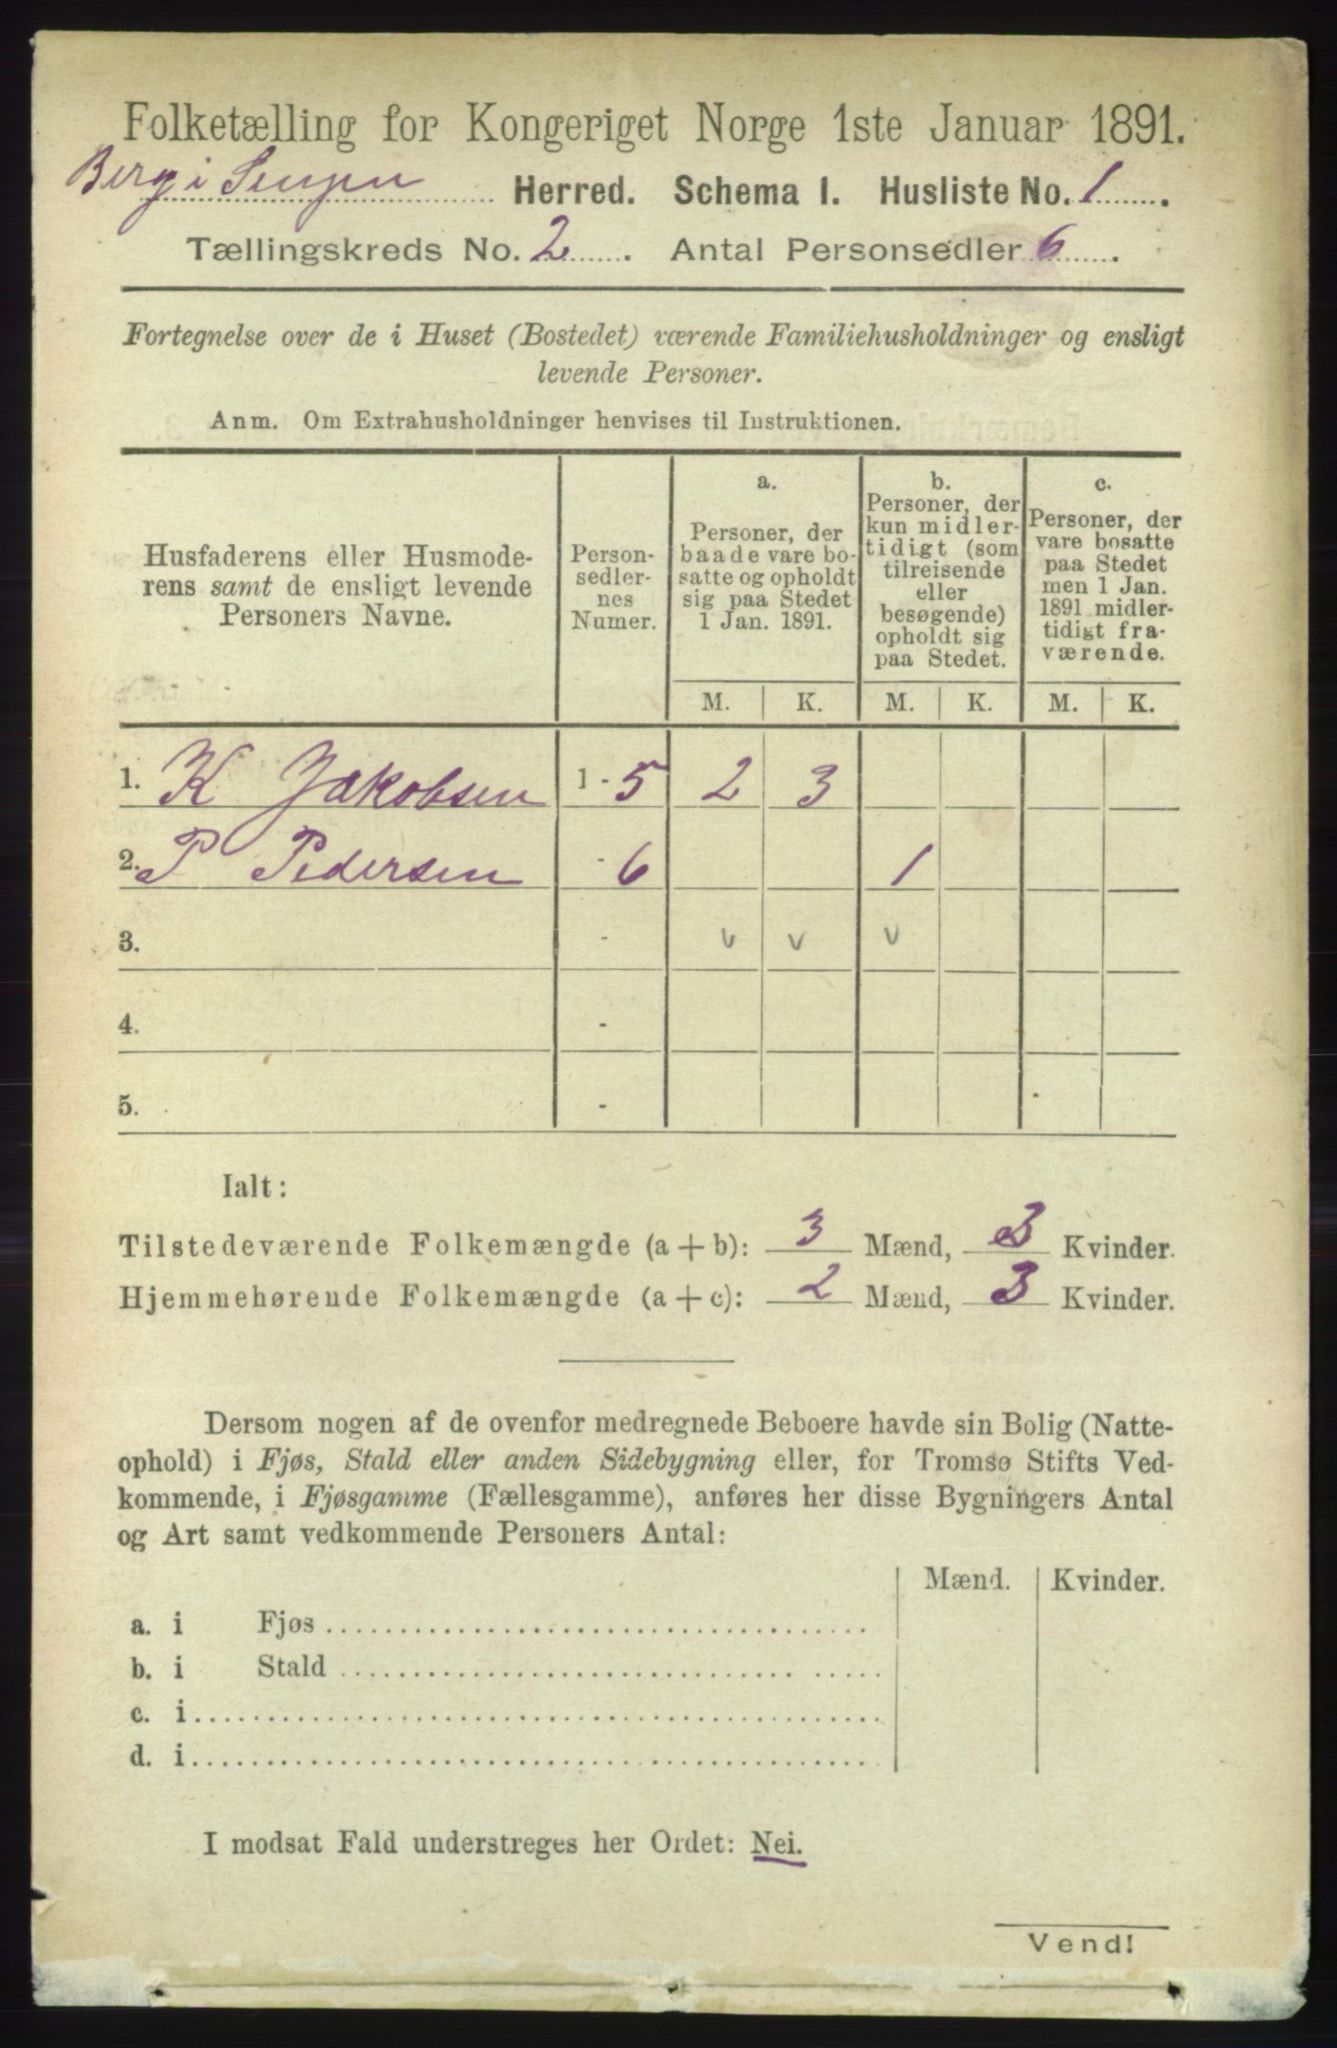 Folketælling for Kongeriget Norge 1ste Januar 1891.
Berg i Senjen Herred. Schema I. Husliste No. 1.
Tællingskreds No. 2. Antal Personsedler 6.
Fortegnelse over de i Huset (Bostedet) værende Familiehusholdninger og ensligt
levende Personer.
Anm. Om Extrahusholdninger henvises til Instruktionen.
Husfaderens eller Husmode-
rens samt de ensligt levende
Personers Navne.
Person-
sedler-
nes
Numer.
a.
Personer, der
baade vare bo-
satte og opholdt
sig paa Stedet
1 Jan. 1891.
b.
Personer, der
kun midler-
tidigt (som
tilreisende
eller
besøgende)
opholdt sig
paa Stedet.
c.
Personer, der
vare bosatte
paa Stedet
men 1 Jan.
1891 midler-
tidigt fra-
værende.
M. K. M. K. M. K.
1. K Jakobsen 1 - 5 2 3
2. P Pedersen - 6 1
3. - v v v
4. -
5. -
Ialt:
Tilstedeværende Folkemængde (a + b): 3 Mænd, 3 Kvinder.
Hjemmehørende Folkemængde (a + c): 2 Mænd, 3 Kvinder.
Dersom nogen af de ovenfor medregnede Beboere havde sin Bolig (Natte-
ophold) i Fjøs, Stald eller anden Sidebygning eller, for Tromsø Stifts Ved-
kommende, i Fjøsgamme (Fællesgamme), anføres her disse Bygningers Antal
og Art samt vedkommende Personers Antal:
Mænd. Kvinder.
a. i Fjøs
b. i Stald
c. i
d. i
I modsat Fald understreges her Ordet: Nei.
Vend!